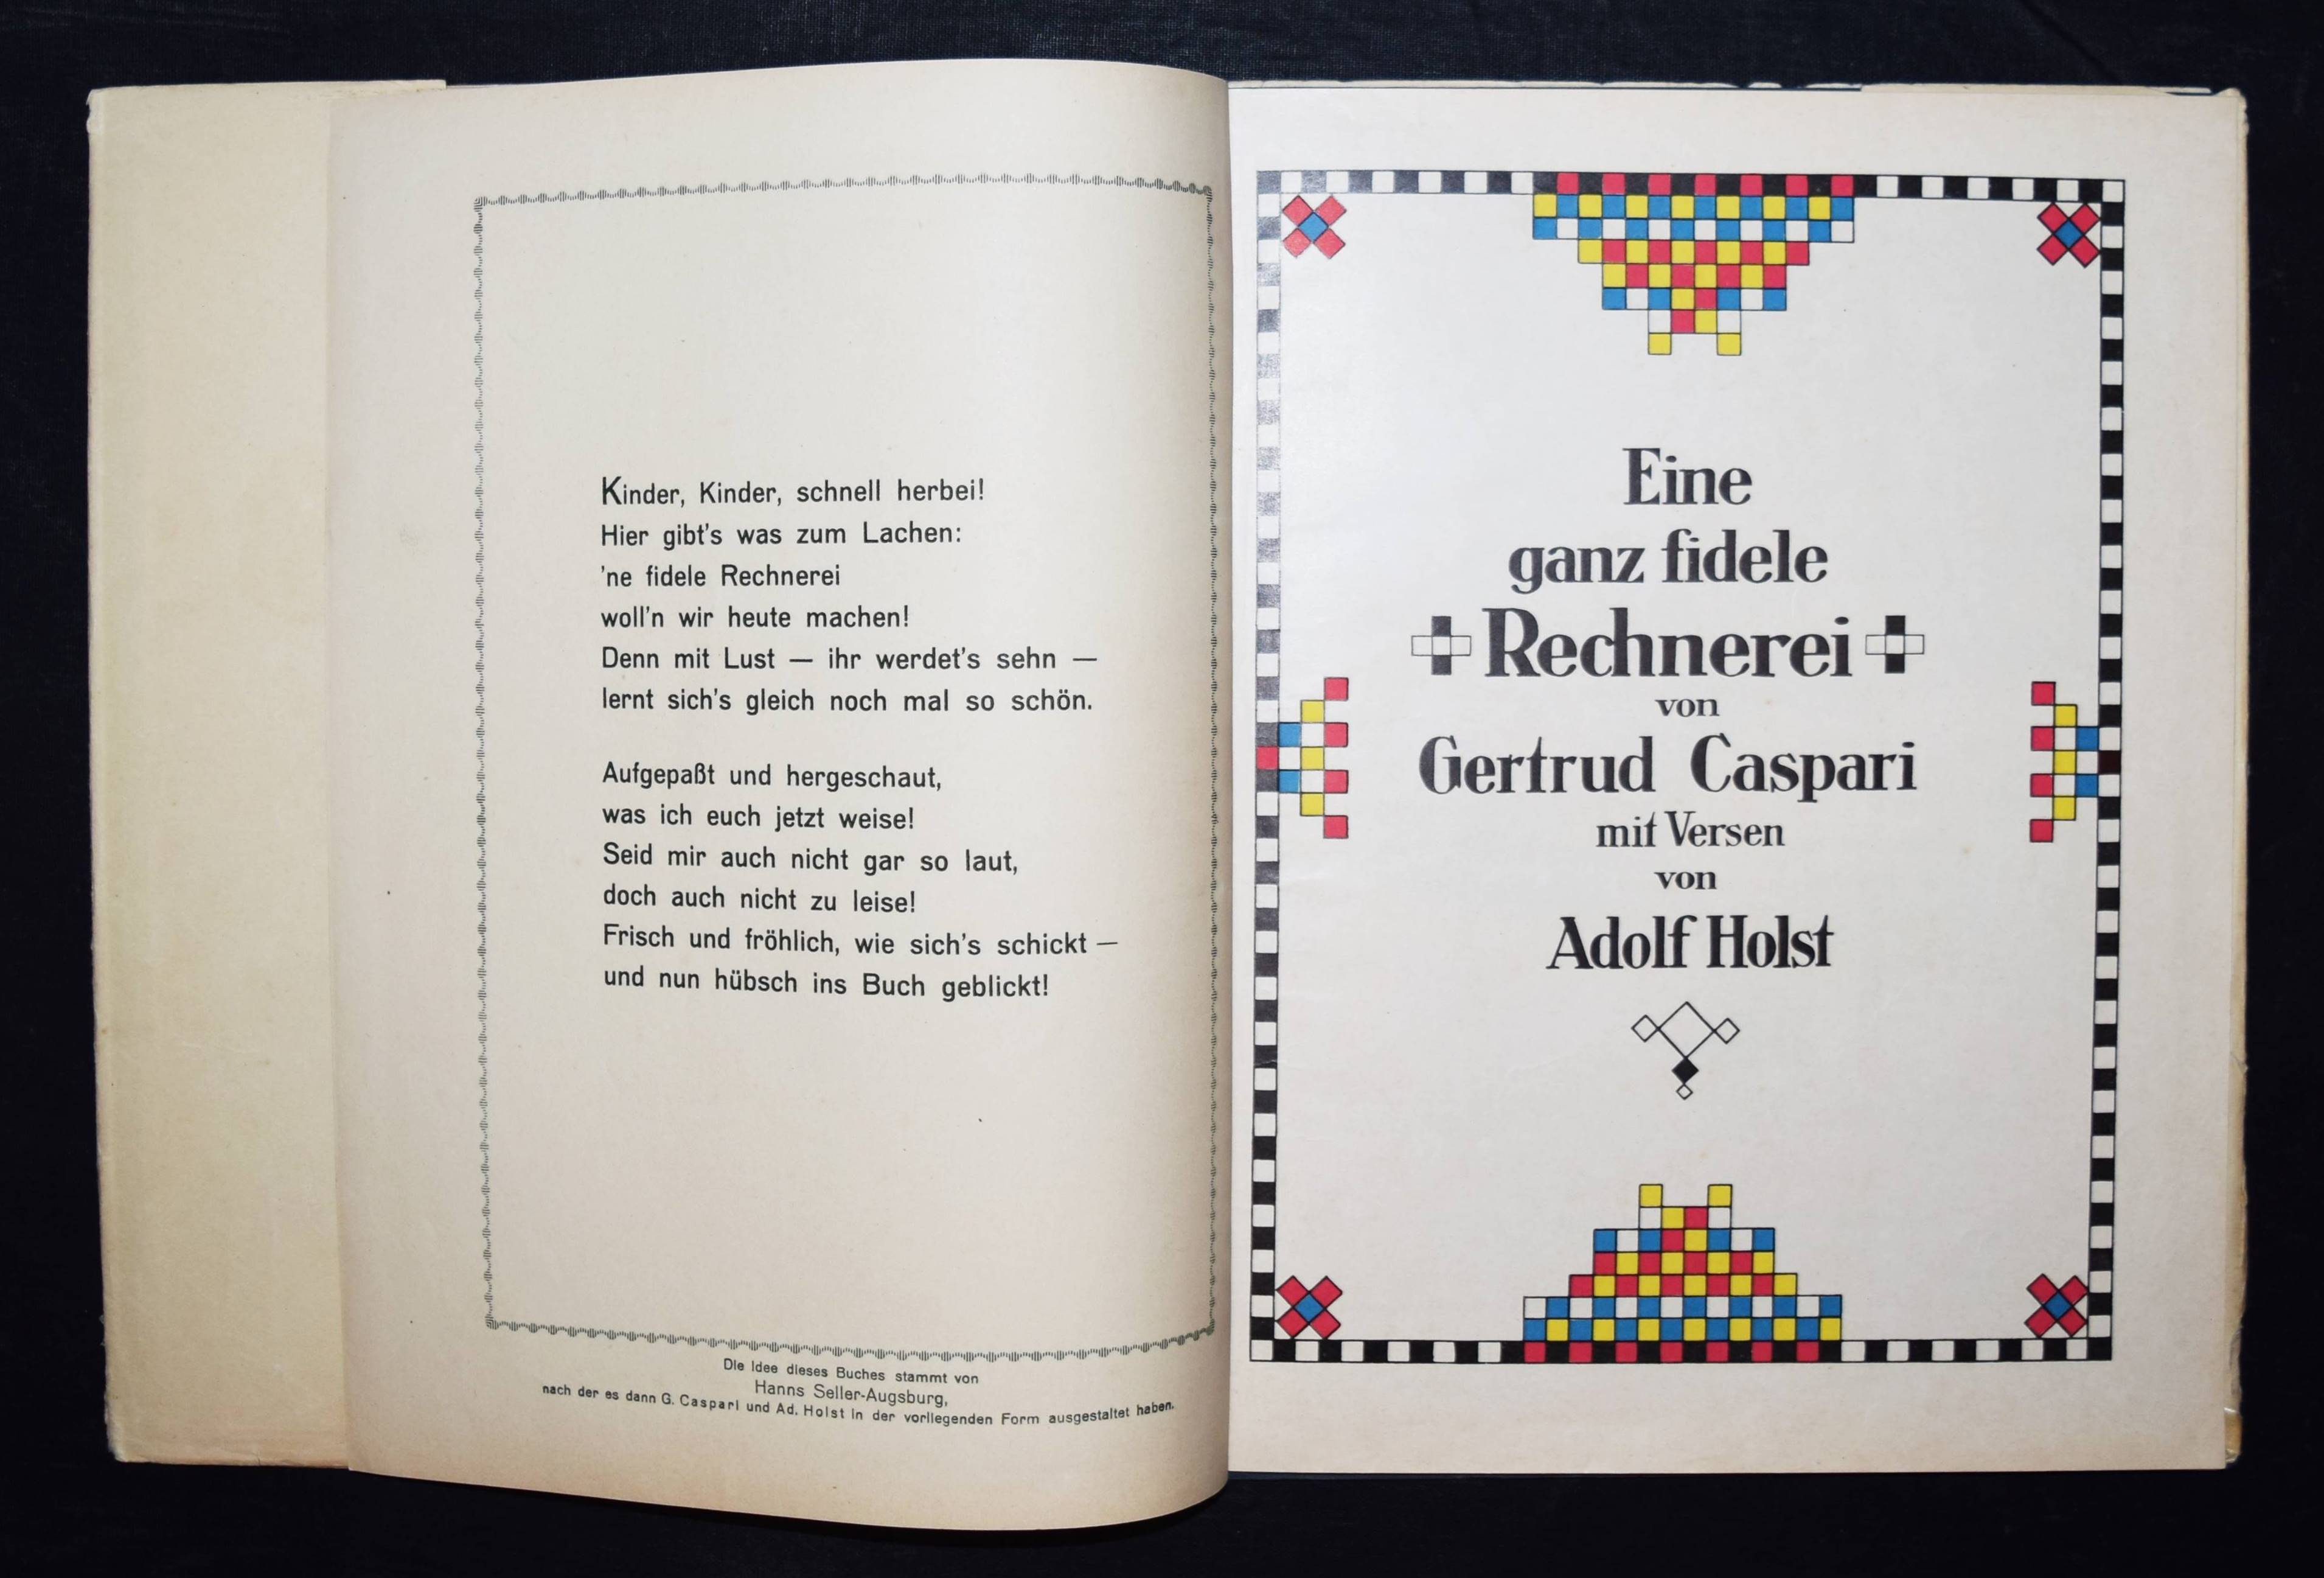 Kinder, Kinder, schnell herbei!
Hier gibt's was zum Lachen:
'ne fidele Rechnerei
woll'n wir heute machen!
Denn mit Lust — ihr werdet's sehn —
lernt sich's gleich noch mal so schön.
Aufgepaßt und hergeschaut,
was ich euch jetzt weise!
Seid mir auch nicht gar so laut,
doch auch nicht zu leise!
Frisch und fröhlich, wie sich's schickt —
und nun hübsch ins Buch geblickt!
Die Idee dieses Buches stammt von
Hanns Seller-Augsburg,
nach der es dann G. Caspari und Ad. Holst in der vorliegenden Form ausgestaltet haben.
Eine
ganz fidele
Rechnerei
von
Gertrud Caspari
mit Versen
von
Adolf Holst